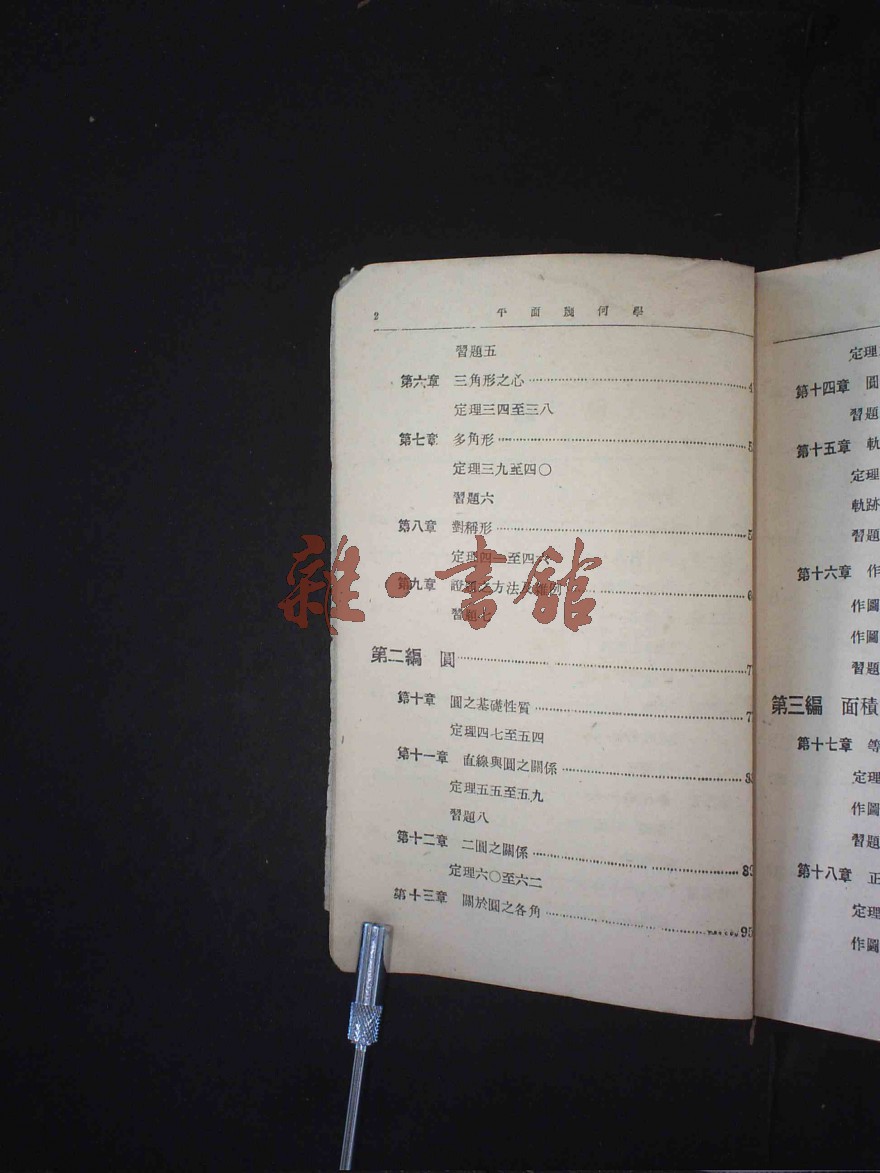 2 平面幾何學
習題五
第六章 三角形之心
定理三四至三八
第七章 多角形
定理三九至四〇
習題六
第八章 對稱形
定理四一至四六
第九章 證題之方法及雜例
習題七
第二編 圓
第十章 圓之基礎性質
定理四七至五四
第十一章 直線與圓之關係
定理五五至五九
習題八
第十二章 二圓之關係
定理六〇至六二
第十三章 關於圓之各角 95
定理
第十四章 圓
習題
第十五章 軌
定理
軌跡
習題
第十六章 作
作圖
作圖
習題
第三編 面積
第十七章 等
定理
作圖
習題
第十八章 正
定理
作圖
雜·書館